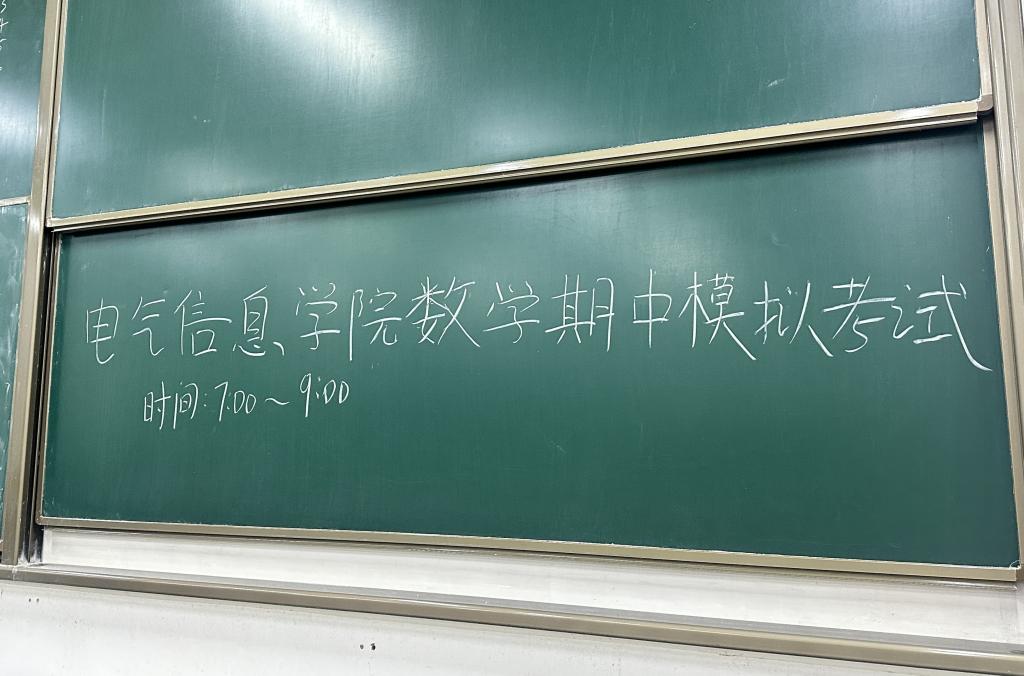 电气信息学院数学期中模拟考试
时间:7:00~9:00